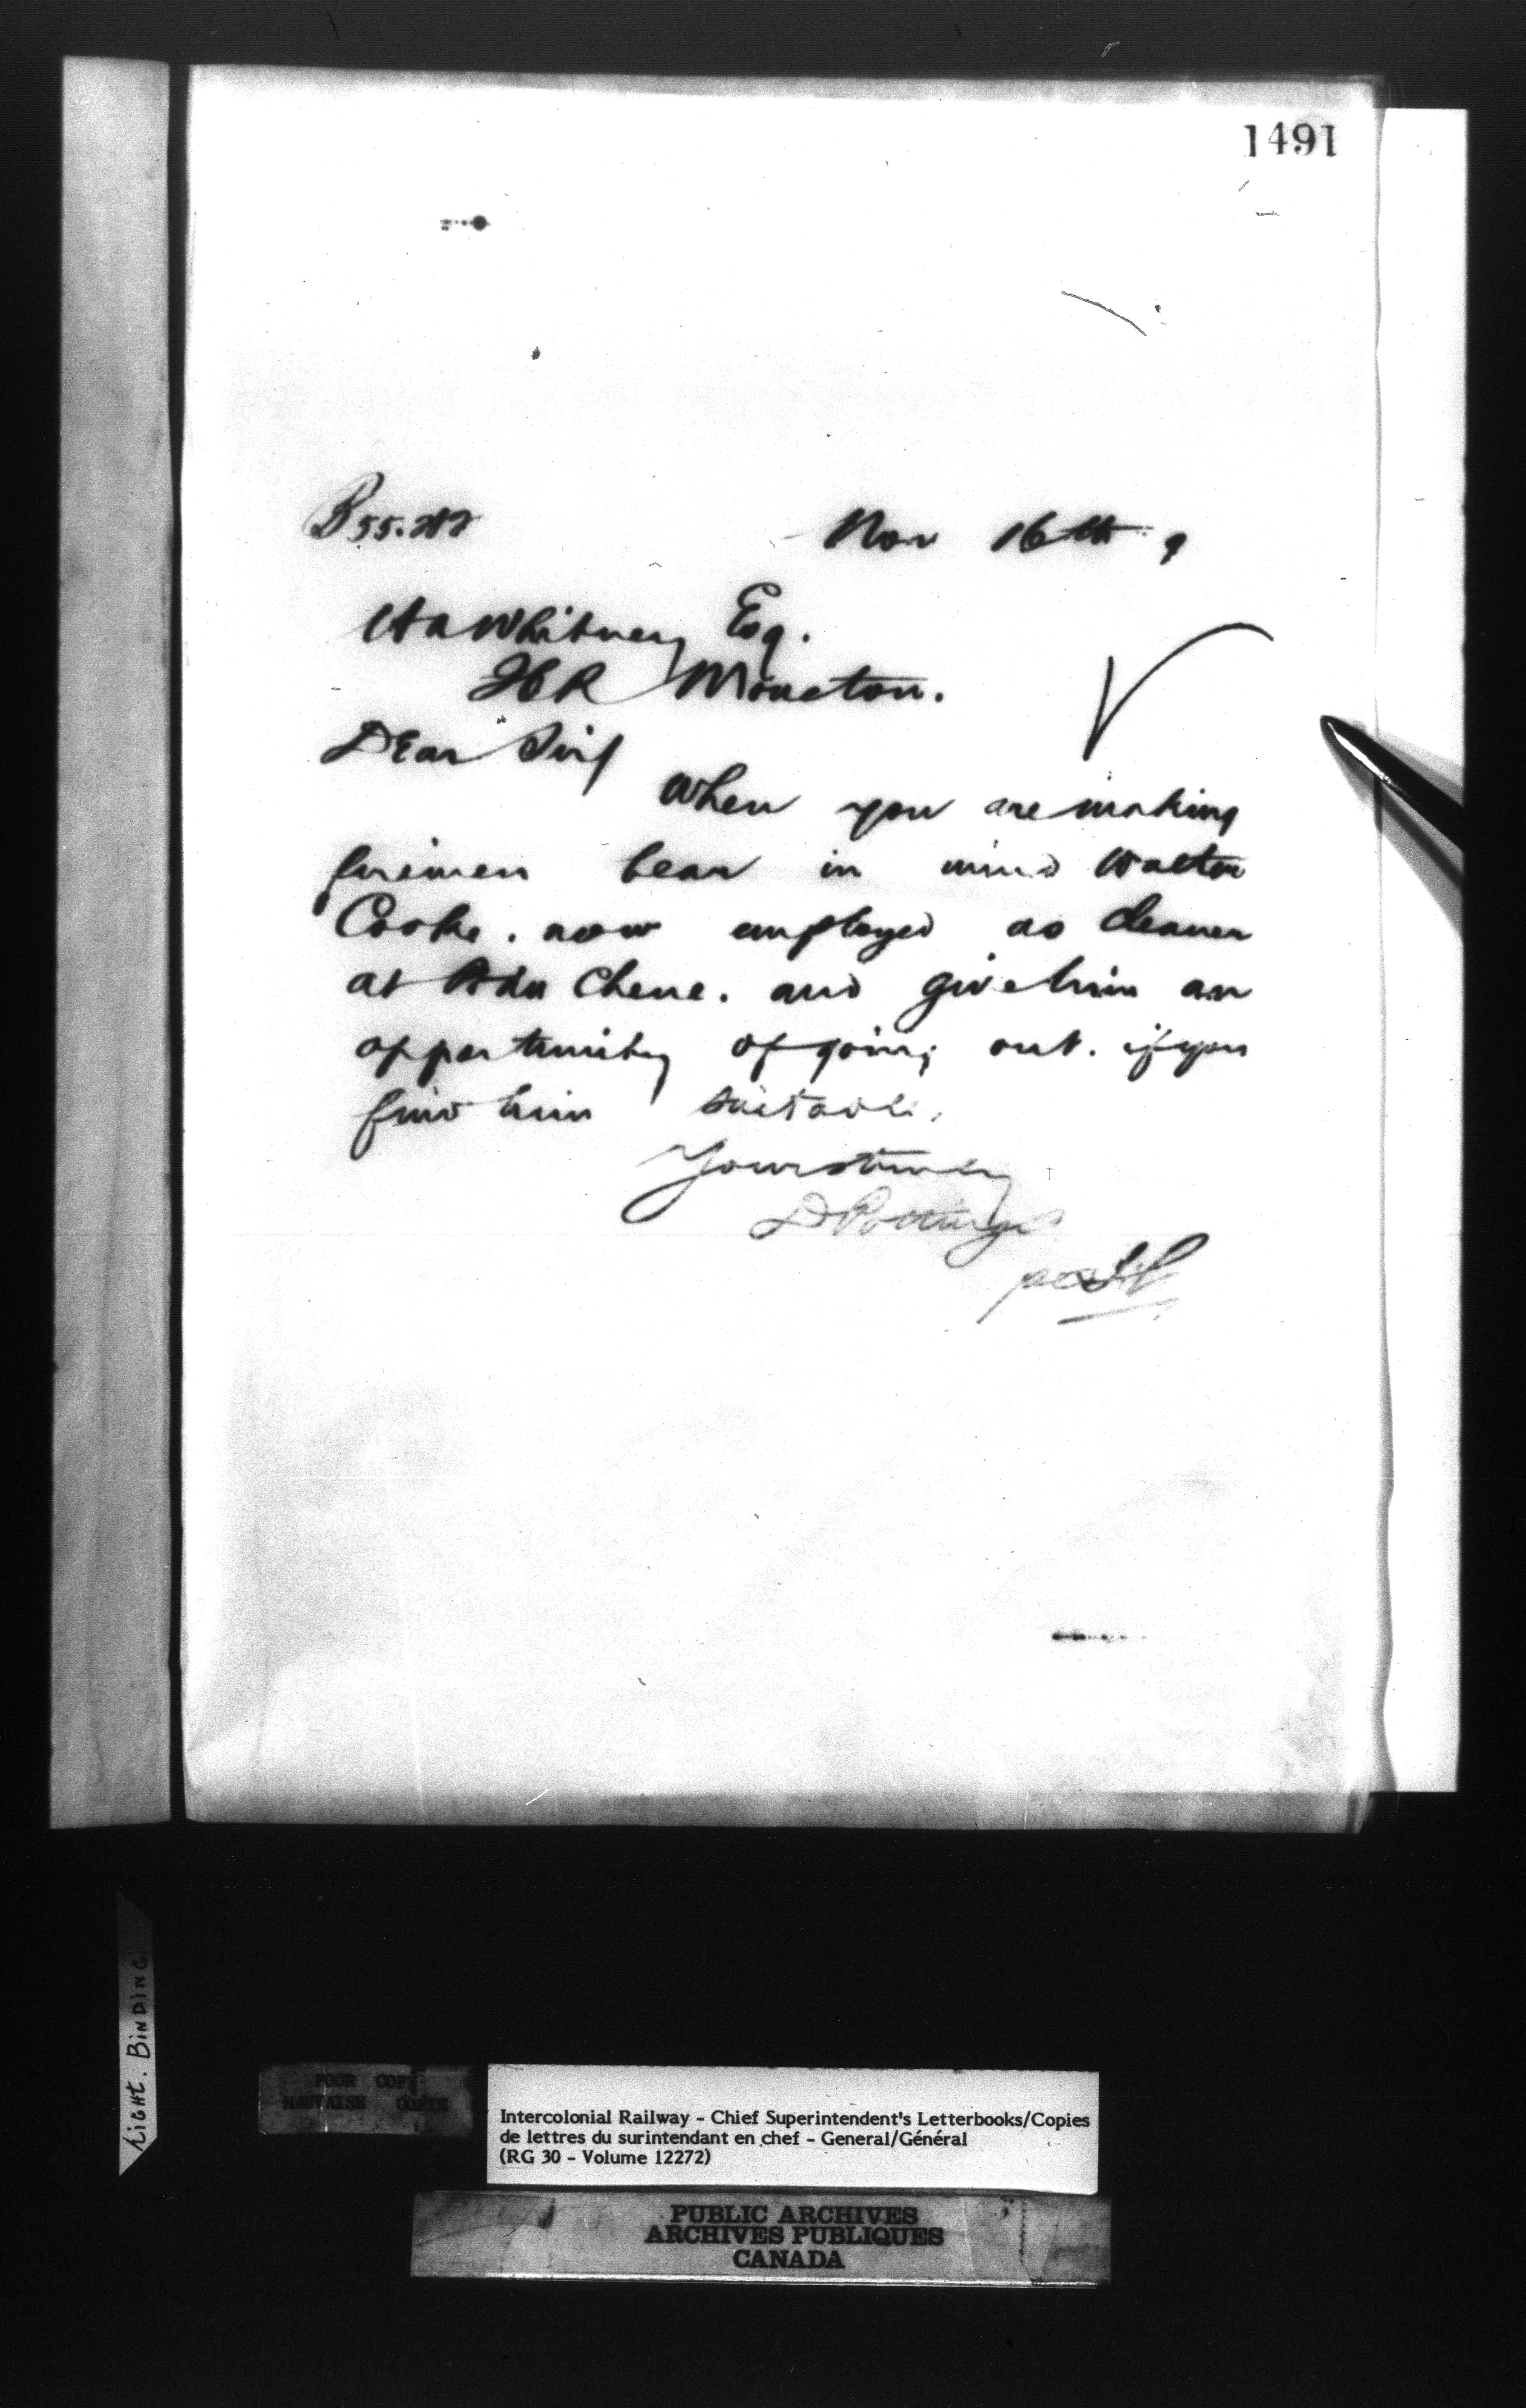 1491
B 55.
Nov 16th 9
H A Whitney Esq.
ICR Moncton.
Dear Sir/
When you are making
firemen bear in mind Walter
Cooke. now employed as cleaner
at Pt du Chene. and give him an
opportunity of going out. if you
find him suitable.
Yours truly
D Pottinger
per
LIGHT. BINDING
POOR COPY
MAUVAISE COPIE
Intercolonial Railway - Chief Superintendent's Letterbooks/Copies
de lettres du surintendant en chef - General/Général
(RG 30 - Volume 12272)
PUBLIC ARCHIVES
ARCHIVES PUBLIQUES
CANADA